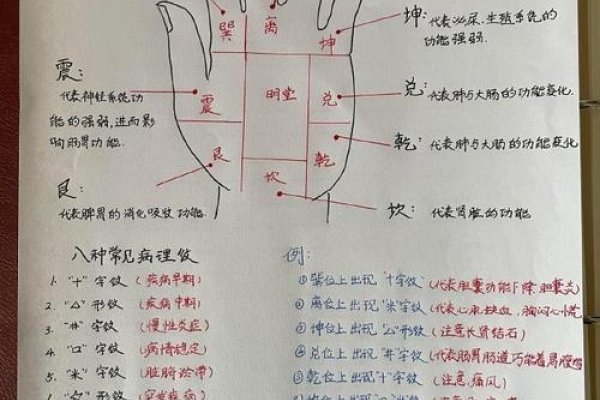 巽
离
坤
坤:代表泌尿.生殖系统的
功能强弱.
震:
代表神经系统功
能的强弱,进而影
响肠胃功能.
震
明堂
兑
兑:代表肺与大肠的功能变化.
艮
乾
乾:代表肺与大肠的功能变化
坎
艮:
代表脾胃的消化吸收功能.
坎:代表肾脏的功能
八种常见病理纹
1."十"字纹(疾病早期)
2."△"形纹(疾病中期)
3."井"字纹(慢性炎症)
4."口"字纹(病情稳定)
5."米"字纹(脏腑瘀滞)
形纹(突发疾病)
例:
①巽位上出现"十字纹"(代表胆囊功能下降,胆囊炎)
②离位上出现"米"字纹(代表心肌缺血,胸闷心慌
③坤位上出现"△"形纹(注意长肾结石)
④兑位上出现"井"字纹(代表肠胃肠道功能差易腹胀
⑤乾位上出现"十"字纹(注意.痛风)